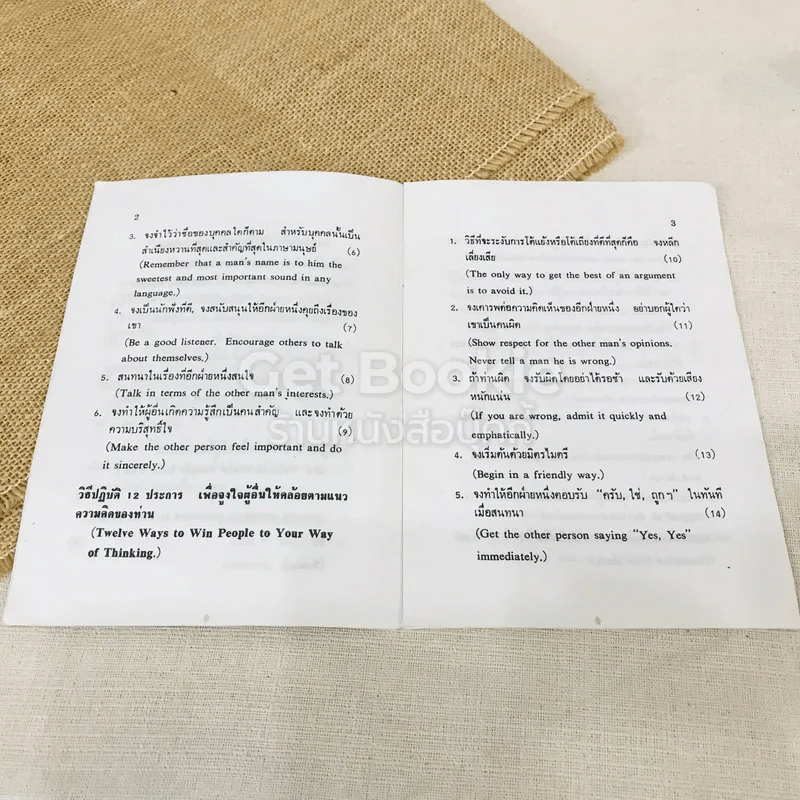 2
3. จงจำไว้ว่าชื่อของบุคคลใดก็ตาม สำหรับบุคคลนั้นเป็น
สำเนียงหวานที่สุดและสำคัญที่สุดในภาษามนุษย์ (6)
(Remember that a man's name is to him the
sweetest and most important sound in any
language.)
4. จงเป็นนักฟังที่ดี, จงสนับสนุนให้อีกฝ่ายหนึ่งคุยถึงเรื่องของ
เขา (7)
(Be a good listener. Encourage others to talk
about themselves.)
5. สนทนาในเรื่องที่อีกฝ่ายหนึ่งสนใจ (8)
(Talk in terms of the other man's interests.)
6. จงทำให้ผู้อื่นเกิดความรู้สึกเป็นคนสำคัญ และจงทำด้วย
ความบริสุทธิ์ใจ (9)
(Make the other person feel important and do
it sincerely.)
วิธีปฏิบัติ 12 ประการ เพื่อจูงใจผู้อื่นให้คล้อยตามแนว
ความคิดของท่าน
(Twelve Ways to Win People to Your Way
of Thinking.)
3
1. วิธีที่จะระงับการโต้แย้งหรือโต้เถียงที่ดีที่สุดก็คือ จงหลีก
เลี่ยงเสีย (10)
(The only way to get the best of an argument
is to avoid it.)
2. จงเคารพต่อความคิดเห็นของอีกฝ่ายหนึ่ง อย่าบอกผู้ใดว่า
เขาเป็นคนผิด (11)
(Show respect for the other man's opinions.
Never tell a man he is wrong.)
3. ถ้าท่านผิด จงรับผิดโดยอย่าได้รอช้า และรับด้วยเสียง
หนักแน่น (12)
(If you are wrong, admit it quickly and
emphatically.)
4. จงเริ่มต้นด้วยมิตรไมตรี (13)
(Begin in a friendly way.)
5. จงทำให้อีกฝ่ายหนึ่งตอบรับ "ครับ, ใช่, ถูกๆ" ในทันที
เมื่อสนทนา (14)
(Get the other person saying "Yes, Yes"
immediately.)
Get Bookie
ร้านหนังสือน็ดดี